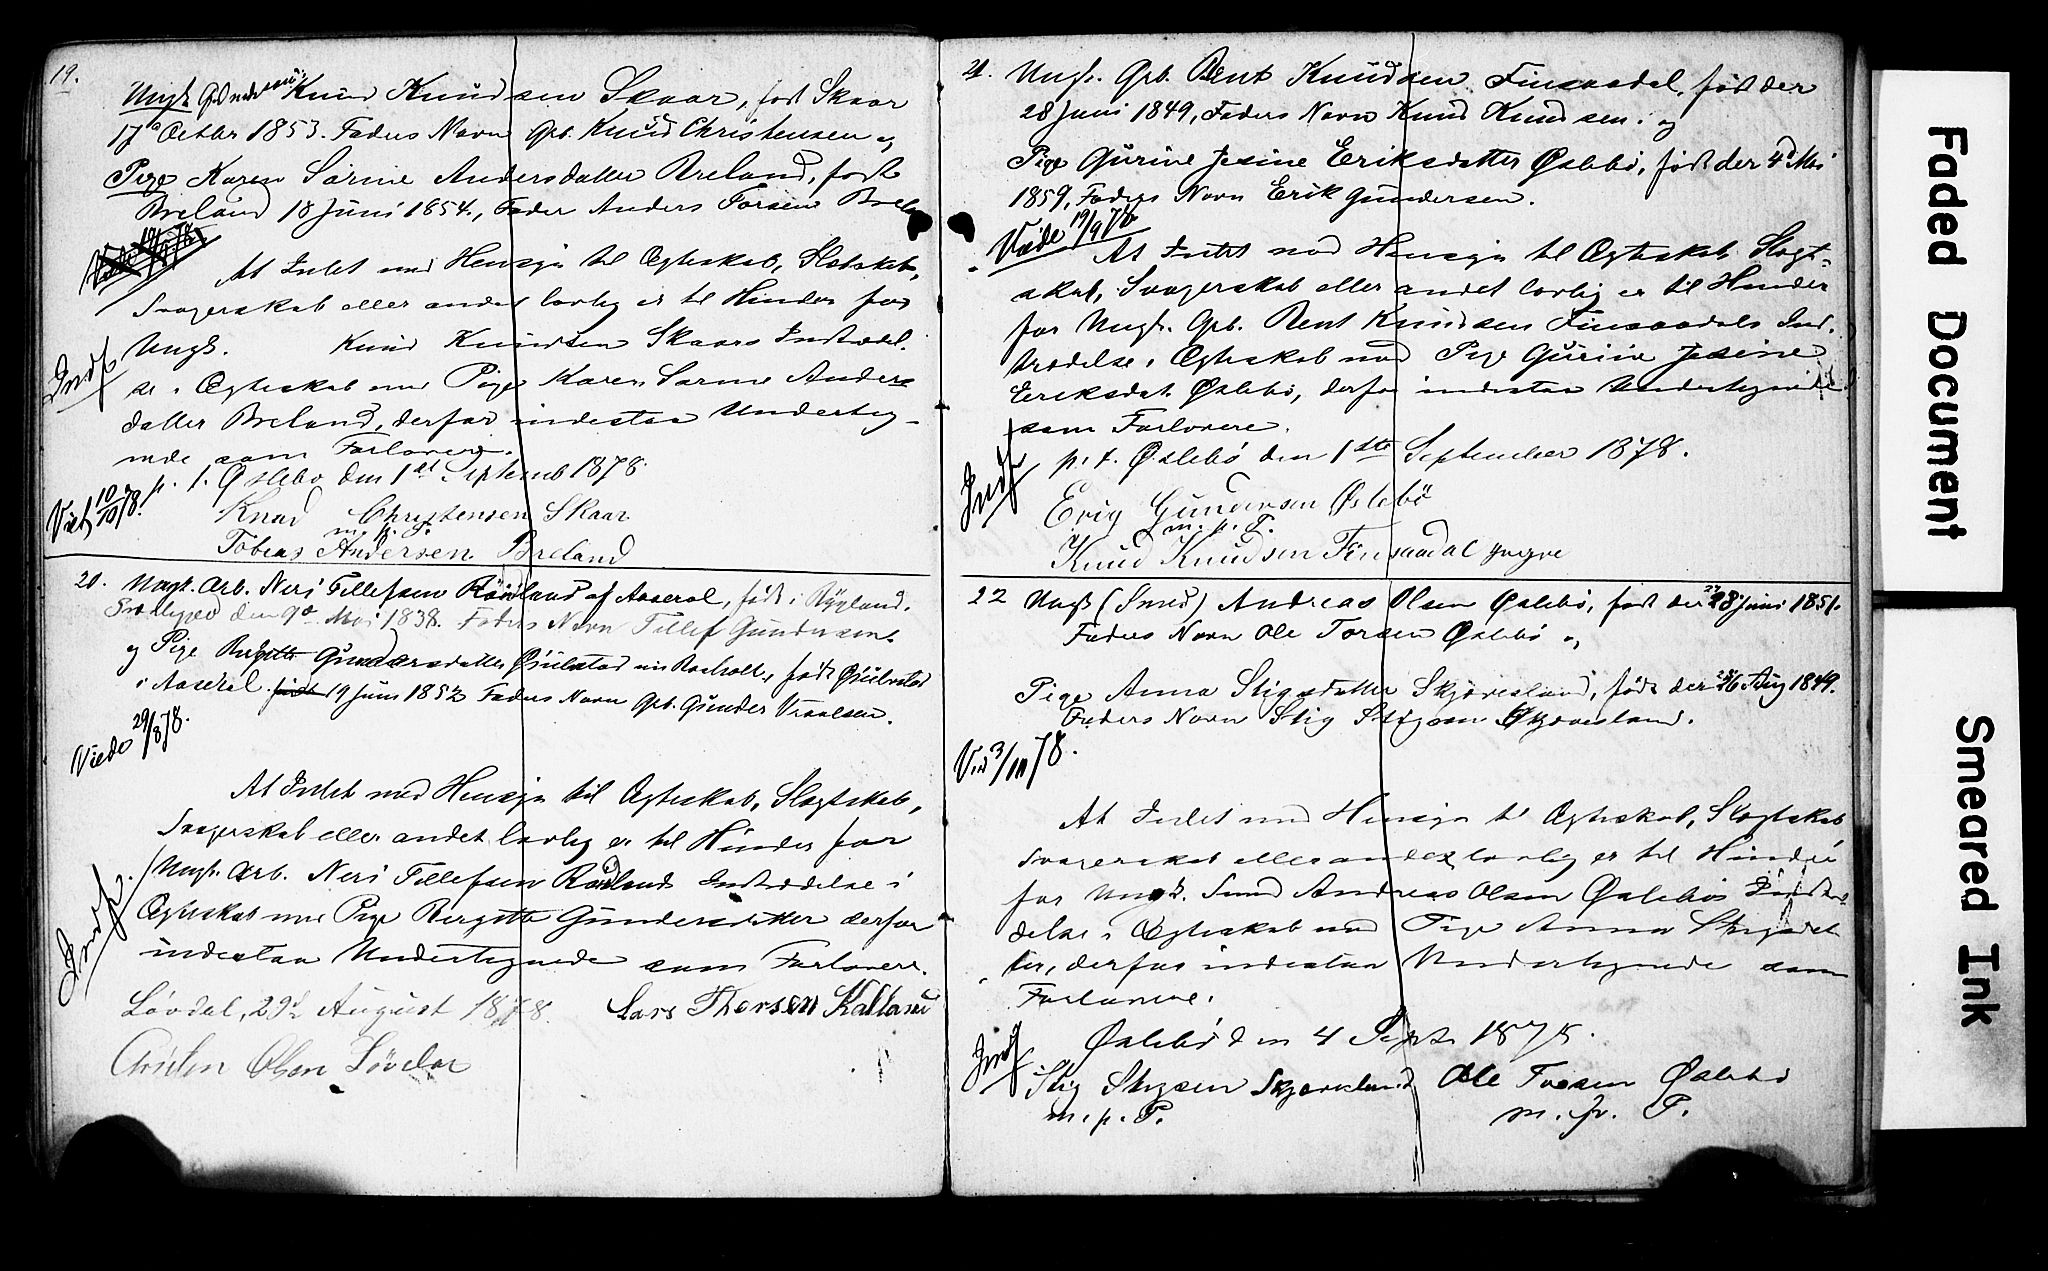 19.
Ungk. Knud Knudsen Skaar, født Skaar
17de Octbr 1853. Faders Navn Grb. Knud Christensen og
Pige Karen Sarine Andersdatter Breland, født
Breland 18 Juni 1854., Fader Anders Torsen
At Intet med Hensyn til Ægteskab, Slætskab,
Svogerskab eller andet lovlig er til Hinder for
Ungk. Knud Knudsen Skaars Indtrædel-
se i Ægteskab med Pige Karen Sarine Anders
datter Breland, derfor indestaa Underteg-
nede som Forlovere.
Indf
p. t. Øslebø den 1st September 1878.
Viet 10/10 78.
Knud Christensen Skaar
m. p. P.
Tobias Andersen Breland
20. Ungk. Arb. Neri Tellefsen Röiland af Aaseral, født i Bygland.
Præstegjed den 9de Mai 1838. Faders Navn Tellef Gundersen.
og Pige Birgitte Gundersdatter født
i Aaseral. født 19 Juni 1852 Faders Navn Grb. Gunder
Viede 29/8 78.
At Intet med Hensyn til Ægteskab, Slægtskab,
Svogerskab eller andet lovlig er til Hinder for
Ungk. Arb. Neri Tellefsen Indtrædelse i
Ægteskab med Pige Bergitte Gundersdatter derfor
indestaa Undertegnede som Forlovere.
Indf.
Løvdal, 29d August 1878. Lars Thorsen Kalland
Christen Olsen Løvdal
21. Ungk. Grb. Bent Knudsen Finsaadal, født der
28 Juni 1849, Faders Navn Knud Knudsen. og
Pige Gurine Jesine Eriksdatter Øslebø, født der 4de Mai
1859, Faders Navn Erik Gundersen.
Viede 19/9 78
At Intet med Hensyn til Ægteskab Slægt-
skab, Svogerskab eller andet lovlig er til Hinder
for Ungk. Grb. Bent Knudsen Finsaadals Ind.
trædelse i Ægteskab med Pige Gurine Jesine
Eriksdat. Øslebø, derfor indestaa Undertegnede
som Forlovere.
Indf
p. t. Øslebø den 1ste September 1878.
Erig Gundersen Øslebö
m. p. P.
Knud Knudsen Finsaadal yngre
22 Ungk (Smed) Andreas Olsen Øslebø, født der 28 Juni 1851.
Faders Navn Ole Torsen Øslebø og
Pige Anna Stigsdatter Skjævesland, født der 26 Aug 1849.
Faders Navn Stig Stigsen Skjævesland.
Vied 3/10 78.
At Intet med Hensyn til Ægteskab, Slægtskab
Svogerskab eller andet lovlig er til Hinder
for Ungk. Smed Andreas Olsen Øslebøs Indtræ-
delse i Ægteskab med Pige Anna Stigsdat
ter, derfor indestaa Undertegnede som
Forlovere.
Indf
Øslebø den 4 Sept. 1878.
Stig Stigsen Skjævesland Ole Torsen Øslebø
m. p. P. m. p. P.
Faded Document
Smeared Ink